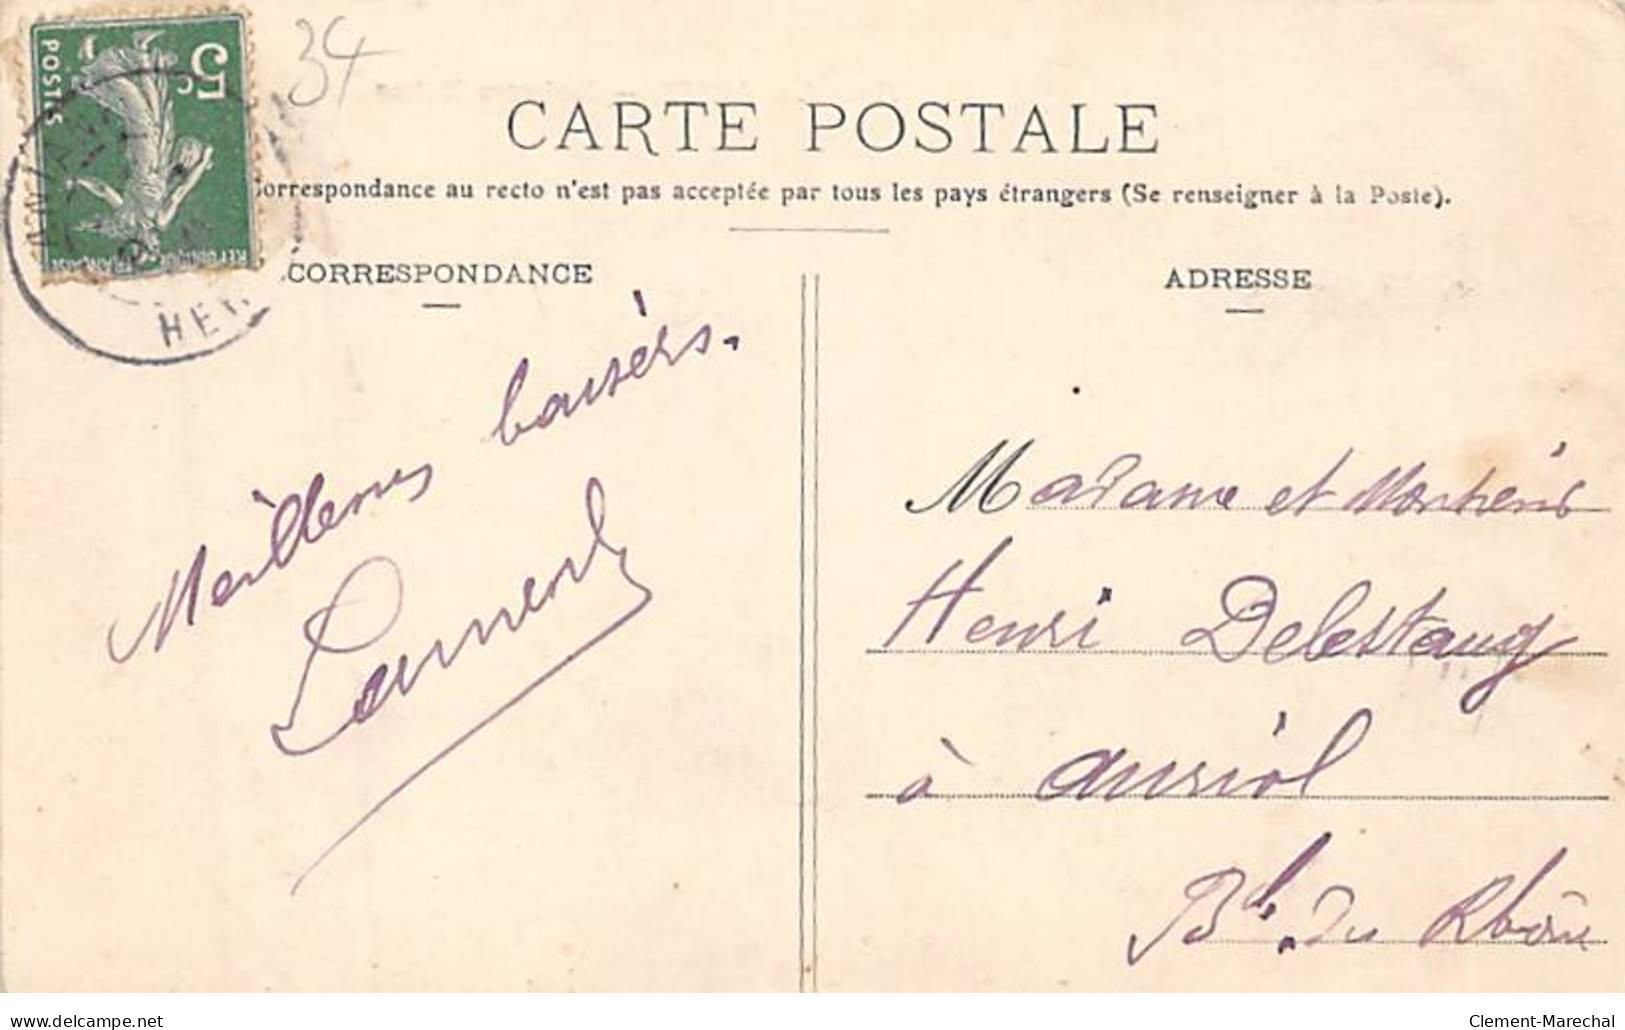 5c
POSTES
REPUBLIQUE FRANÇAISE
34
CARTE POSTALE
Correspondance au recto n'est pas acceptée par tous les pays étrangers (Se renseigner à la Poste).
CORRESPONDANCE
Meilleurs baisers.
ADRESSE
Madame et Monsieur
Henri Delestang
à auriol
Bh. du Rhône
www.delcampe.net
Clement-Marechal